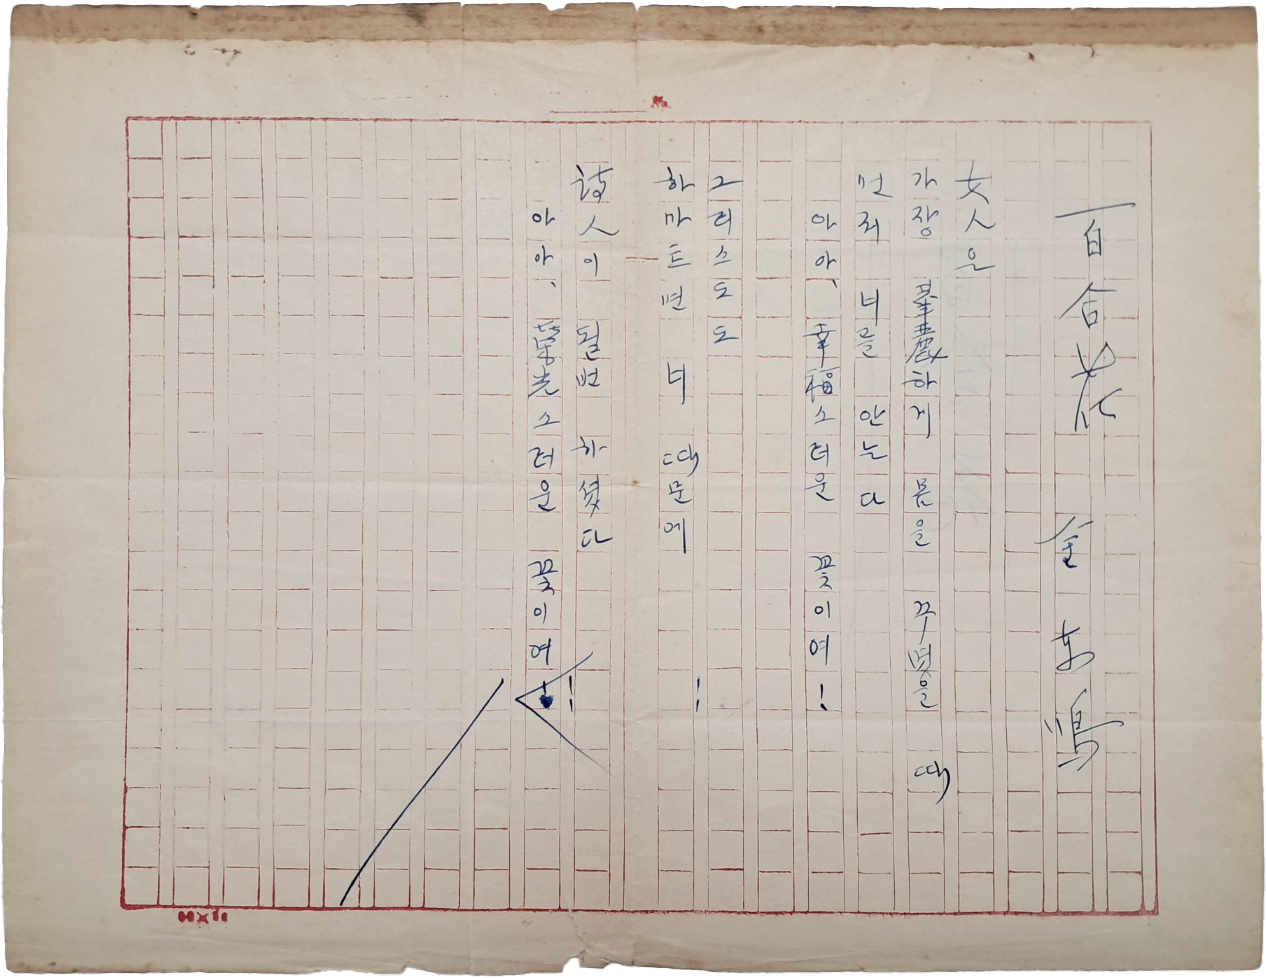 百合花 金東鳴
女人은
가장 華麗하게 몸을 꾸몃을 때
먼저 너를 안는다
아아、幸福스러운 꽃이여!
그리스도도
하마트면 너 때문에
詩人이 될번 하셨다!
아아、榮光스러운 꽃이여